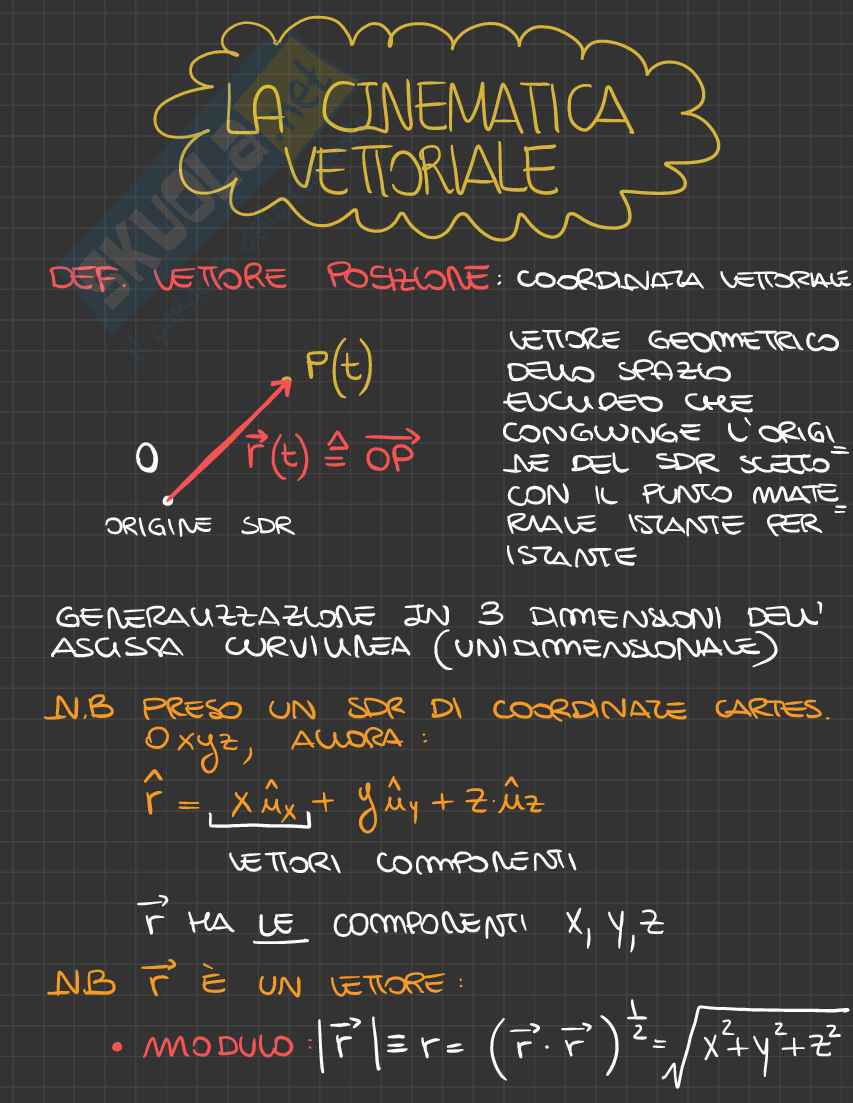 LA CINEMATICA
VETTORIALE
SKUOLA.net
DEF. VETTORE POSIZIONE: COORDINATA VETTORIALE
P(t)
O
r⃗(t) ≜ OP⃗
ORIGINE SDR
VETTORE GEOMETRICO
DELLO SPAZIO
EUCLIDEO CHE
CONGIUNGE L'ORIGI=
NE DEL SDR SCELTO
CON IL PUNTO MATE=
RIALE ISTANTE PER
ISTANTE
GENERALIZZAZIONE IN 3 DIMENSIONI DELL'
ASCISSA CURVILINEA (UNIDIMENSIONALE)
N.B PRESO UN SDR DI COORDINATE CARTES.
Oxyz, ALLORA:
r̂ = x û_x + y û_y + z·û_z
VETTORI COMPONENTI
r⃗ HA LE COMPONENTI X, Y, Z
N.B r⃗ È UN VETTORE:
• MODULO: |r⃗| ≡ r = (r⃗·r⃗)^(1/2) = √(x²+y²+z²)